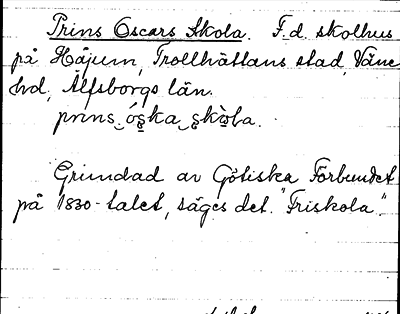 Prins Oscars Skola. F.d. skolhus
på Håjum, Trollhättans stad, Väne
hd, Älfsborgs län.
prins ós̱ka s̱kòla.
Grundad av Götiska Förbundet
på 1830-talet, säges det. "Friskola".